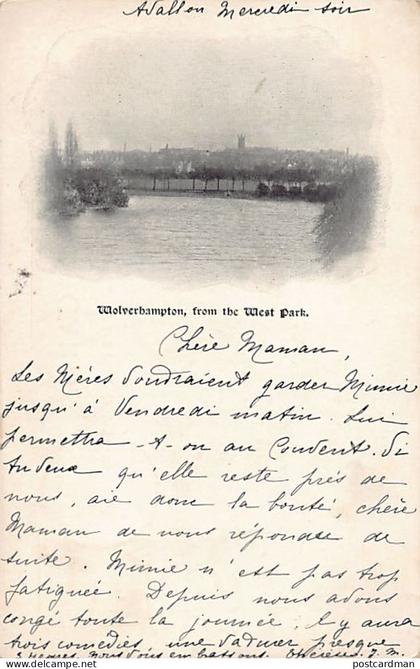 Avallon Mercredi soir
Wolverhampton, from the West Park.
Chère Maman,
Les Nièces voudraient garder Mimie
jusqu'à Vendredi matin. Lui
permettra-t-on au Couvent. Si
tu veux qu'elle reste près de
nous, aie donc la bonté, chère
Maman de nous réponse de
suite. Mimie n'est pas trop
fatiguée. Depuis nous avons
congé toute la journée; il y aura
trois comédies, une va durer presque
2 heures. nous vous embrassons. J. M.
postcardman
www.delcampe.net